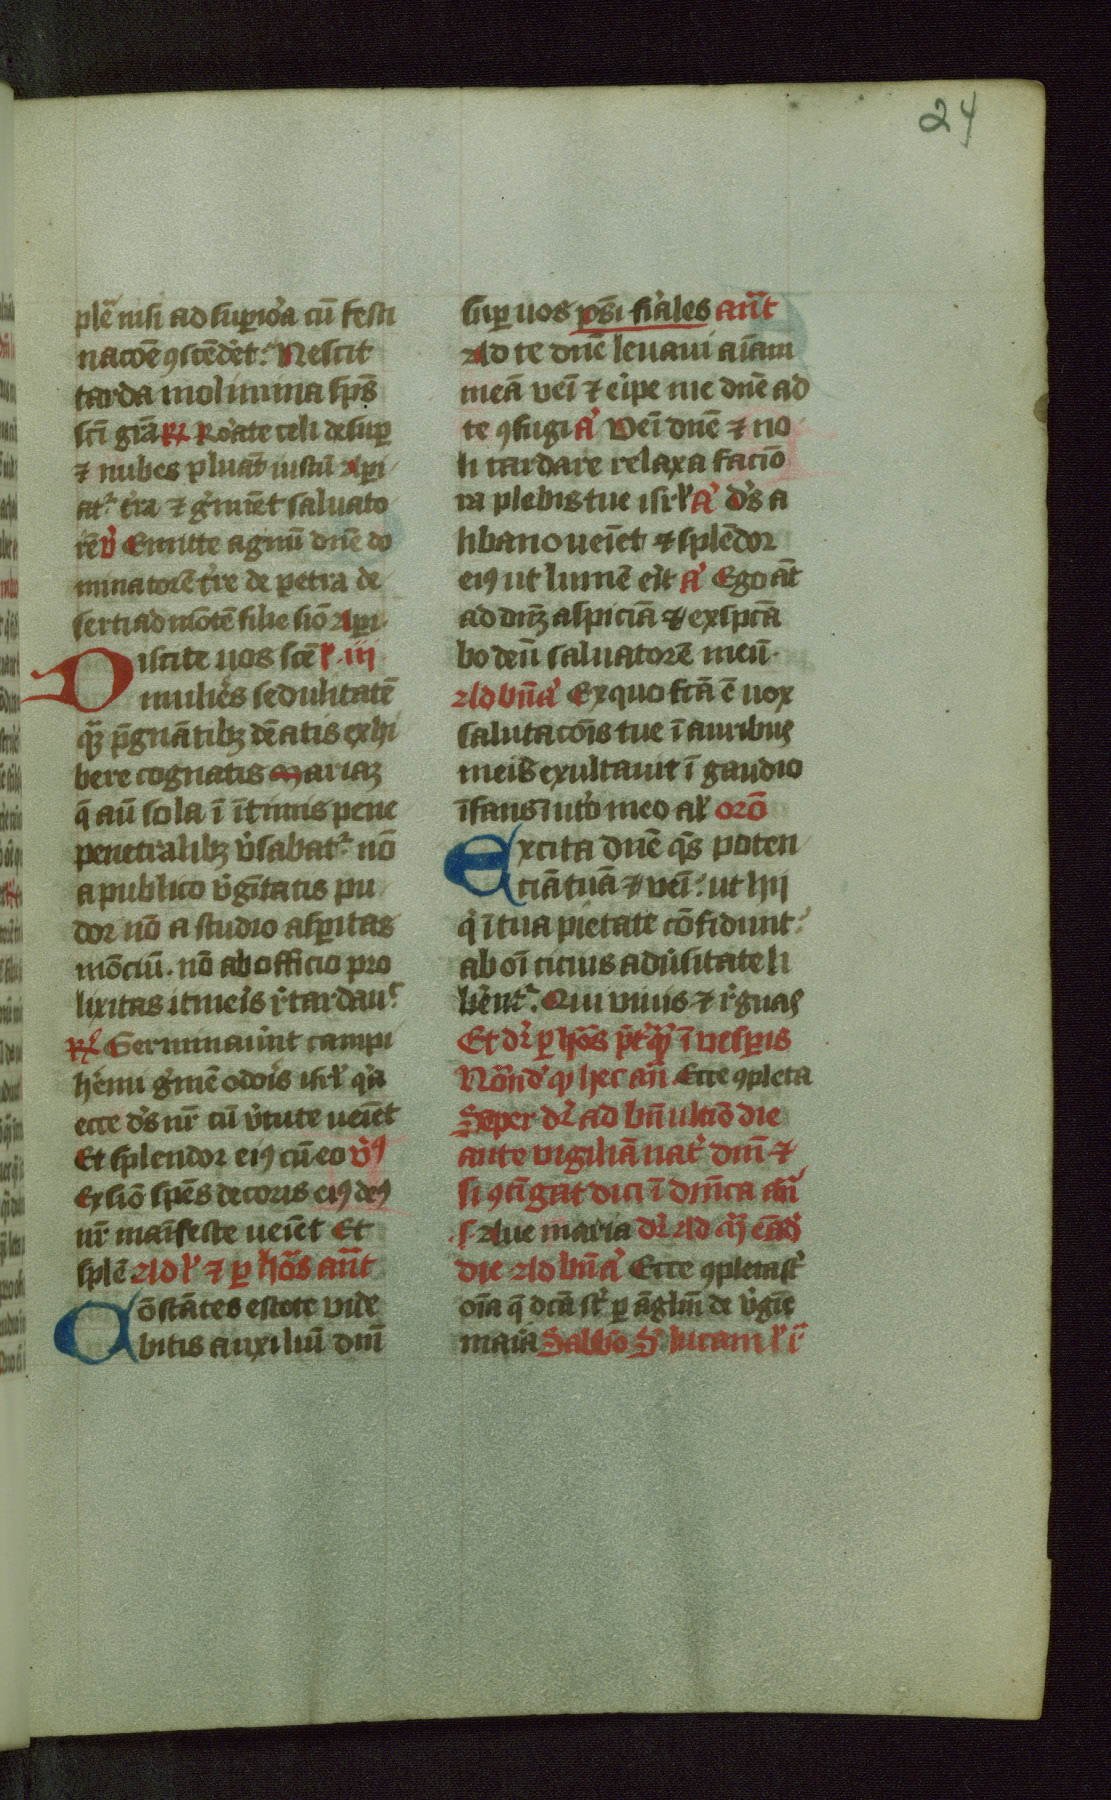 24
plē nisi ad suꝑiõa cū festi
nacōe ꝯscēdet: Nescit
tarda molimina sp̄s
sc̄i gr̄a ℟ Rorate celi desuꝑ
⁊ nubes pluāt iustū Aperi
at᷑ t̓ra ⁊ g̓miēt saluato
rē v̓ Emitte agnū dn̄e do
minatorē t̓re de petra de
serti ad mōtē filie siō Aperi
Discite uos sc̄e l̓ .iii
mulieres sedulitatē
qꝫ p̄gnātibꝫ dēatis exhi
bere cognatis mariaꝫ
q̄ aū sola ī ītimis pene
penetralibꝫ v̓sabat᷑ nō
a publico v̓gītatis pu
dor nō a studio asꝑitas
mōciū. nō ab officio pro
lixitas itineīs r̓tardau᷑
℟ Germinauīnt campi
heremi g̓mē odoīs isrl̓ qīa
ecce de᷒s nr̄ cū v̓tute ueīet
Et splendor eiꝰ cū eo v̓ꝰ
Ex siō spēs decoris eiꝰ deꝰ
nr̄ maīfeste ueīet Et
splē Ad l̓ ⁊ ꝑ ho᷒s an̄t
Cōstātes estote vide
bitis auxiliū dn̄i
suꝑ uos ps̄i fīales an̄t
Ad te dn̄e leuaui aīam
meā veī ⁊ eīpe me dn̄e ad
te ꝯfugi a᷒ Veī dn̄e ⁊ no
li tardare relaxa facīo
ra plebis tue isrl̓ a᷒ de᷒s a
libano ueīet ⁊ splēdor
eiꝰ ut lumē eīt a᷒ Ego āt
ad dn̄ꝫ aspiciā ⁊ exspcā
bo deū saluatorē meū.
Ad bn̄ a᷒ Ex quo fcā ē uox
salutacōis tue ī auribus
meis exultauit ī gaudio
īfans ī ut̓o meo al̓ orō
Excita dn̄e qs̄ poten
ciā tuā ⁊ veī: ut hii
qī ī tua pietate cōfidunt:
ab oī cicius adu̓sitate li
bēnt᷑. Qui viuis ⁊ r̓gnas
Et dr̄ ꝑ ho᷒s p̄t̓qꝫ ī vesꝑis
Nōnd̓ qꝫ hec an̄ Ecce ꝯpleta
Seper dr̄ ad bn̄ ultīo die
ante vigiliā nat̓ dn̄i ⁊
si ꝯtīgat dici ī dn̄ica an̄
.s. Aue maria dr̄ Ad
die Ad bn̄ a᷒ Ecce ꝯpleta st̓
oīa q̄ dcā st̓ ꝑ āglm̄ de v̓gīe
maīa Sabbo Sꝫ lucam l̓ i᷑